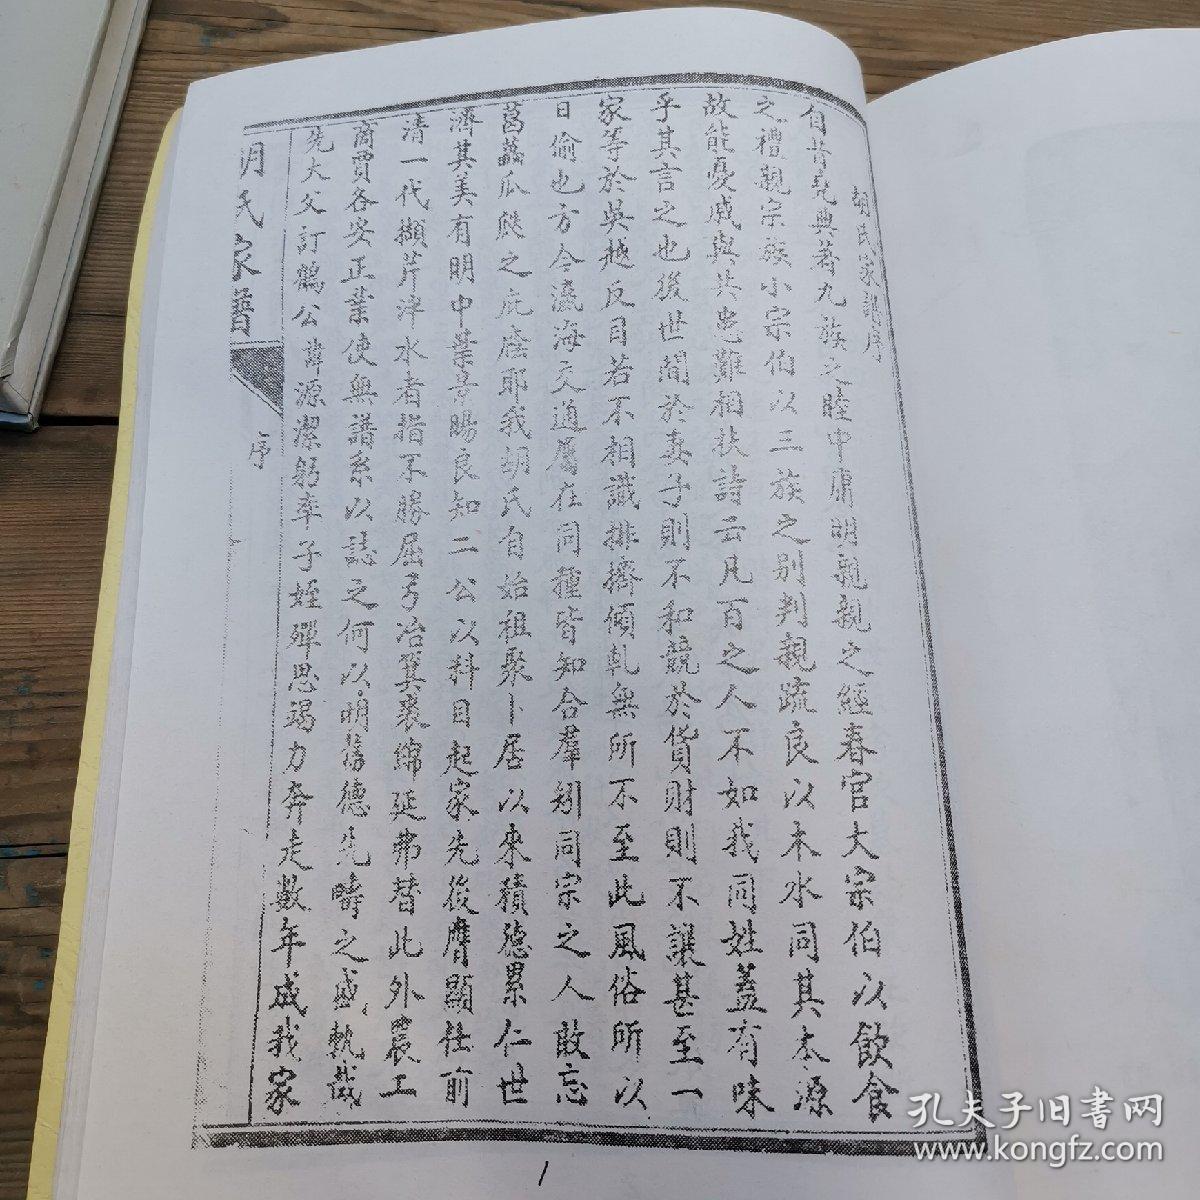 胡氏家譜序
自昔堯典著九族之睦中庸明親親之經春官大宗伯以飲食
之禮親宗族小宗伯以三族之別判親疏良以木水同其本源
故能憂戚與共患難相扶詩云凡百之人不如我同姓蓋有味
乎其言之也後世閱於妻子則不和競於貨財則不讓甚至一
家等於吳越反目若不相識排擠傾軋無所不至此風俗所以
日偷也方今瀛海交通屬在同種皆知合羣矧同宗之人敢忘
葛藟瓜瓞之庇廕耶我胡氏自始祖聚卜居以來積德累仁世
濟其美有明中葉景暘良知二公以科目起家先後膺顯仕前
清一代擷芹泮水者指不勝屈弓冶箕裘綿延弗替此外農工
商賈各安正業使無譜系以誌之何以明舊德先疇之盛孰哉
先大父訂鶴公諱源潔躬率子姪殫思竭力奔走數年成我家
胡氏家譜
序
1
孔夫子旧書网
www.kongfz.com